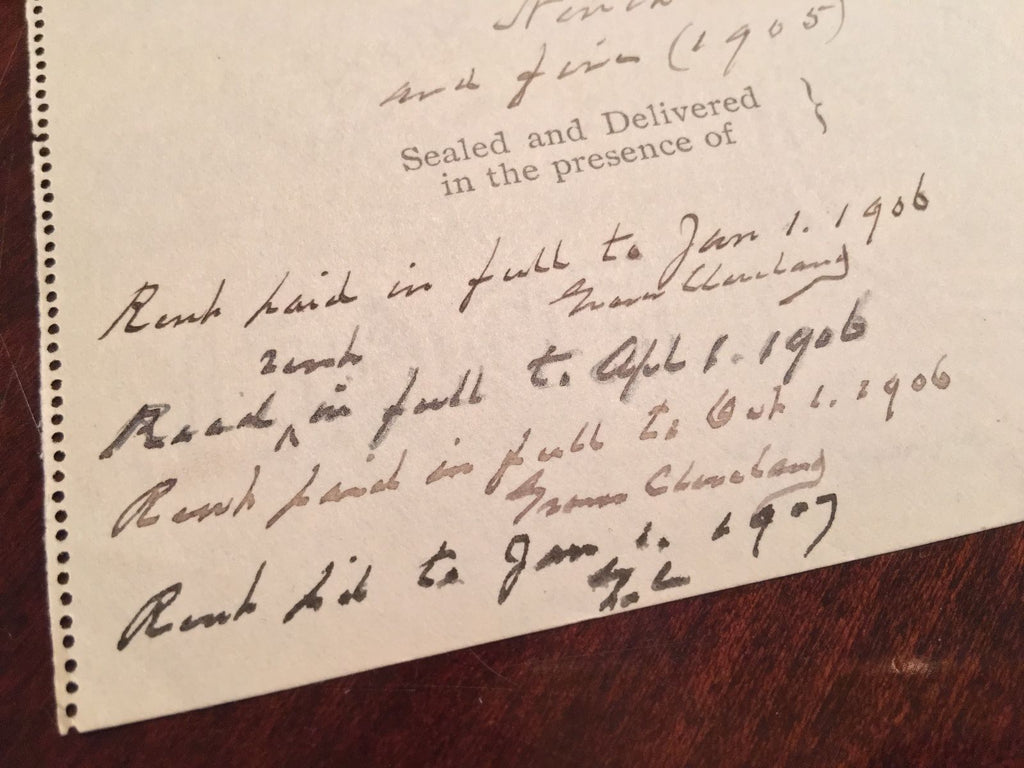 and five (1905)
Sealed and Delivered }
in the presence of
Rent paid in full to Jan 1. 1906
Grover Cleveland
rent
Recd ^ in full to Apl 1. 1906
Rent paid in full to Oct 1. 1906
Grover Cleveland
Rent pd to Jan 1. 1907
G. C